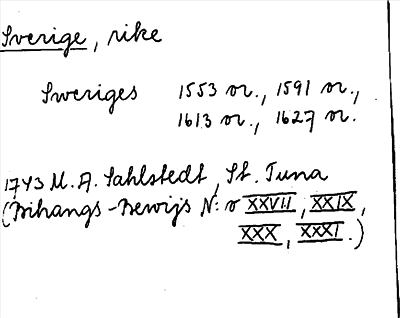 Sverige, rike
Sweriges 1553 or., 1591 or.,
1613 or., 1627 or.
1743 M. A. Sahlstedt, St. Tuna
(Bihangs-Bewijs N:r XXVII, XXIX,
XXX, XXXI.)